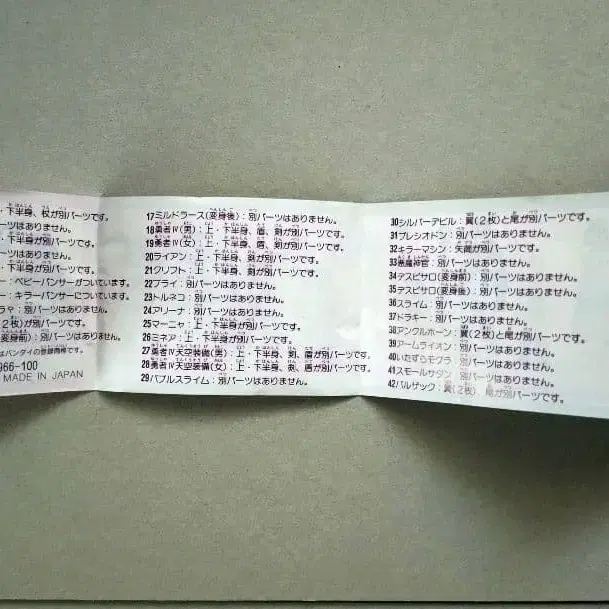 ・下半身、杖が別パーツです。
ーツはありません。
・下半身が別パーツです。
ーツはありません。
・下半身が別パーツです。
ー：ベビーパンサーがついています。
ー：キラーパンサーがついています。
ラヤ：別パーツはありません。
2枚)が別パーツです。
変身前)：別パーツはありません。
はバンダイの登録商標です。
966-100
MADE IN JAPAN
17ミルドラース(変身後)：別パーツはありません。
18勇者Ⅳ(男)：上・下半身、盾、剣が別パーツです。
19勇者Ⅳ(女)：上・下半身、盾、剣が別パーツです。
20ライアン：上・下半身、剣が別パーツです。
21クリフト：上・下半身、剣が別パーツです。
22ブライ：別パーツはありません。
23トルネコ：別パーツはありません。
24アリーナ：別パーツはありません。
25マーニャ：上・下半身が別パーツです。
26ミネア：上・下半身が別パーツです。
27勇者Ⅳ天空装備(男)：上・下半身、剣、盾が別パーツです。
28勇者Ⅳ天空装備(女)：上・下半身、剣、盾が別パーツです。
29バブルスライム：別パーツはありません。
30シルバーデビル：翼(2枚)と尾が別パーツです。
31プレシオドン：別パーツはありません。
32キラーマシン：矢筒が別パーツです。
33悪魔神官：別パーツはありません。
34デスピサロ(変身前)：別パーツはありません。
35デスピサロ(変身後)：別パーツはありません。
36スライム：別パーツはありません。
37ドラキー：別パーツはありません。
38アンクルホーン：翼(2枚)と尾が別パーツです。
39アームライオン：別パーツはありません。
40いたずらモグラ：別パーツはありません。
41スモールサタン：別パーツはありません。
42バルザック：翼(2枚)、尾が別パーツです。